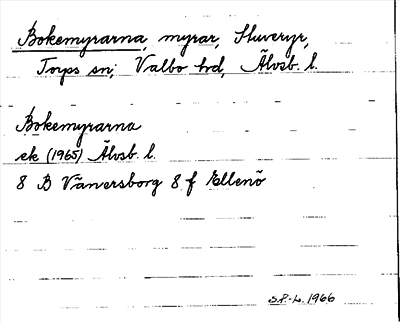 Bokemyrarna, myrar, Huveryr,
Torps sn; Valbo hd, Älvsb. l.
Bokemyrarna
ek (1965) Älvsb. l.
8 B Vänersborg 8 f Ellenö
S.P.-L. 1966